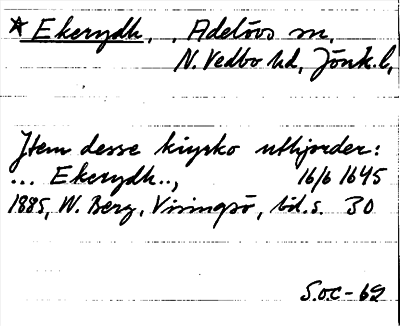 * Ekerydh, . Adelövs sn,
N. Vedbo hd, Jönk.l,
Jtem desse kiyrko uthjorder:
... Ekerydh..,  16/6 1645
1885, W. Berg, Visingsö, bd.s. 30
S.O.C - 69